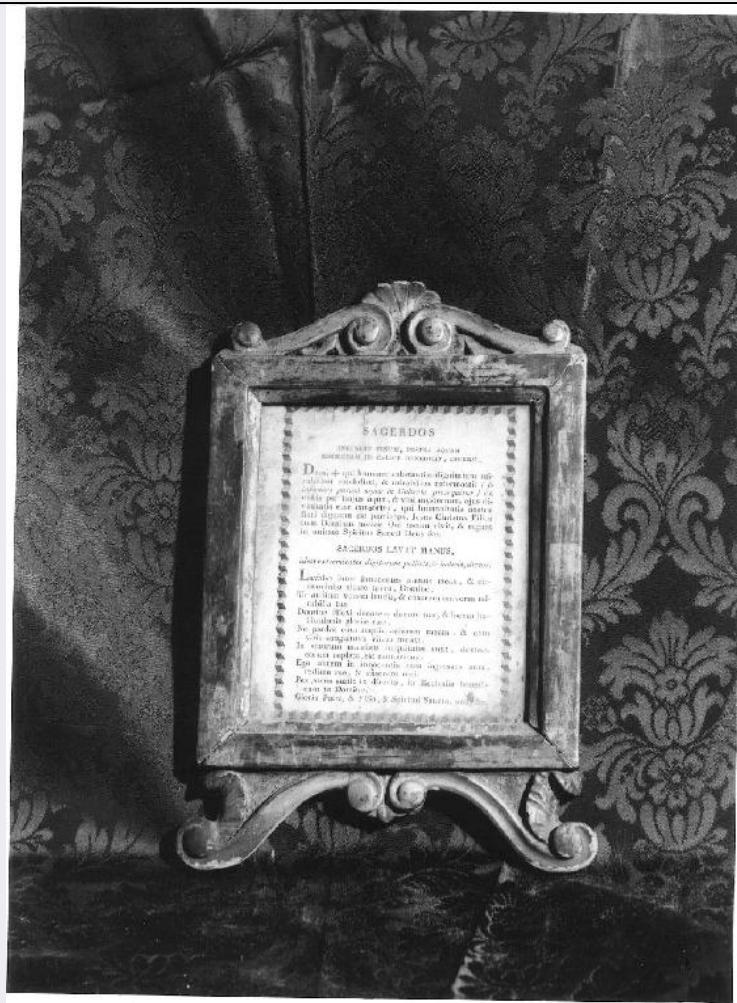 SACERDOS
INFUNDIT VINUM, POSTEA AQUAM
BENEDICTAM IN CALICE
Deus, ✠ qui humanæ substantiæ dignitatem mi-
rabiliter condidisti, & mirabilius reformasti (
) da
nobis per hujus aquæ, & vini mysterium, ejus di-
vinitatis esse consortes, qui humanitatis nostræ
fieri dignatus est particeps, Jesus Christus Filius
tuus Dominus noster Qui tecum vivit, & regnat
in unitate Spiritus Sancti Deus &c.
SACERDOS LAVAT MANUS,
digitorum pollicis, & indicis, dicens.
Lavabo inter innocentes manus meas, & cir-
cumdabo altare tuum, Domine.
Ut audiam vocem laudis, & enarrem universa mi-
rabilia tua
Domine dilexi decorem domus tuæ, & locum ha-
bitationis gloriæ tuæ.
Ne perdas cum impiis animam meam, & cum
viris sanguinum vitam meam.
In quorum manibus iniquitates sunt, dextera
eorum repleta est muneribus.
Ego autem in innocentia mea ingressus sum,
redime me, & miserere mei.
Pes meus stetit in directo, in Ecclesiis benedi-
cam te Domine.
Gloria Patri, & Filio, & Spiritui Sancto,